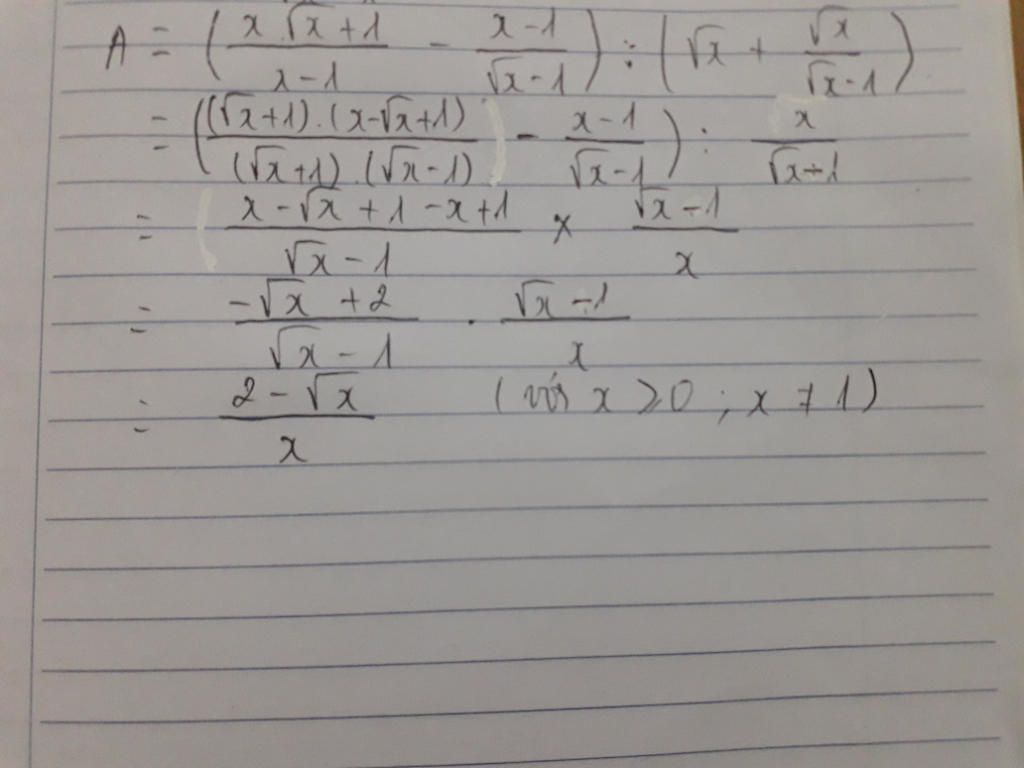 A = ( (x.√x + 1)/(x - 1) - (x - 1)/(√x - 1) ) : ( √x + √x/(√x - 1) )
= ( ((√x + 1).(x - √x + 1))/((√x + 1).(√x - 1)) - (x - 1)/(√x - 1) ) : x/(√x - 1)
= (x - √x + 1 - x + 1)/(√x - 1) × (√x - 1)/x
= (-√x + 2)/(√x - 1) . (√x - 1)/x
= (2 - √x)/x (với x > 0 ; x ≠ 1)